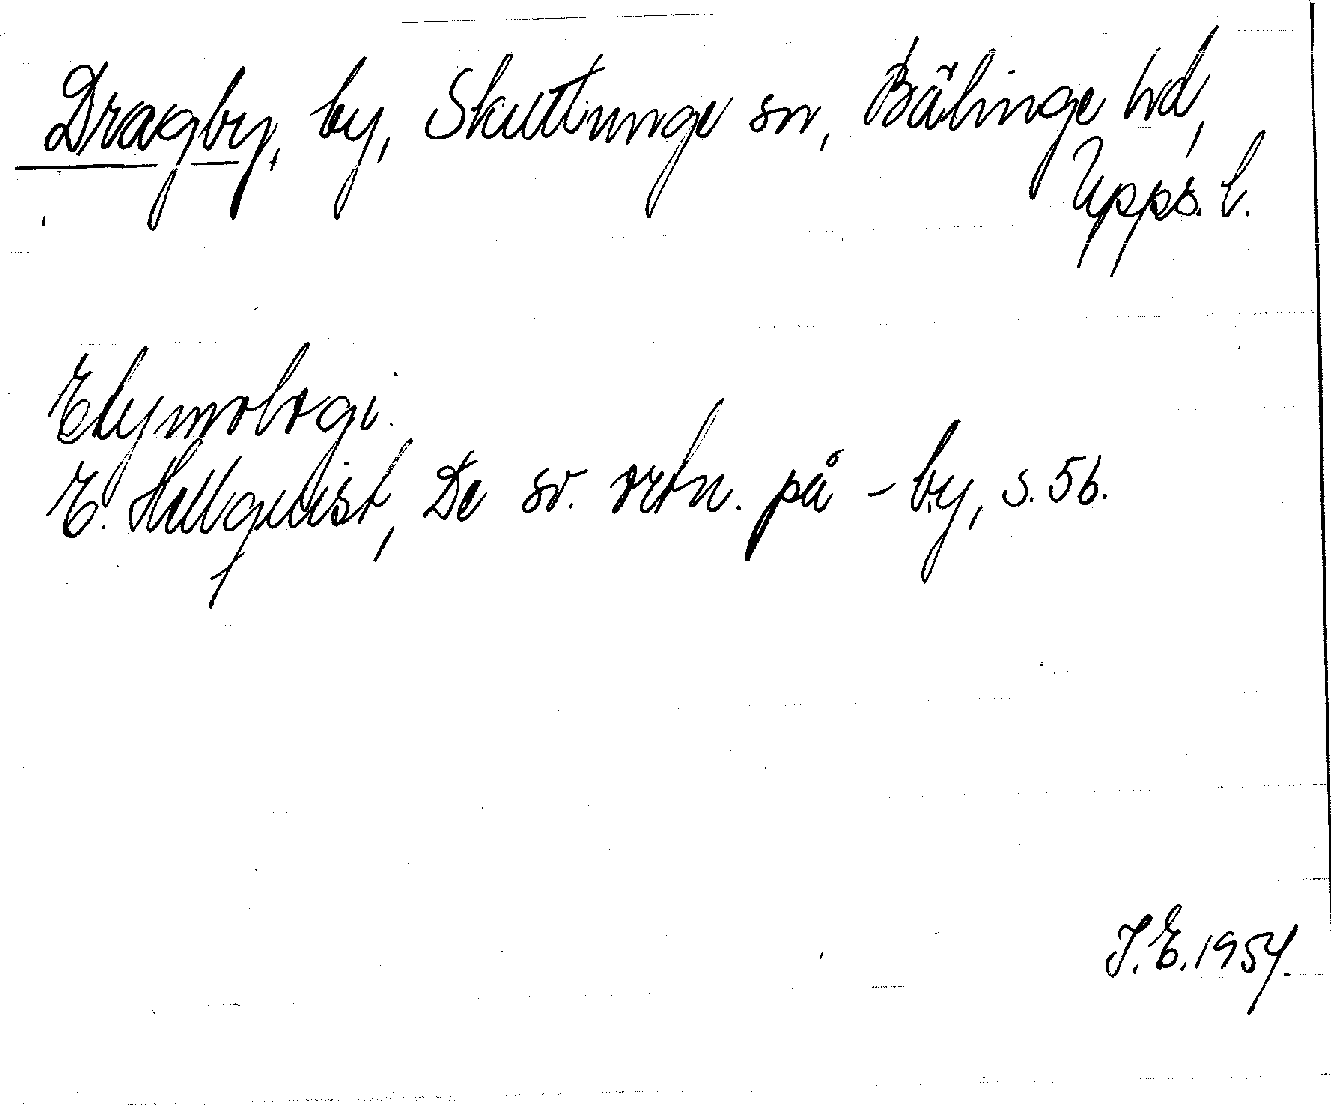 Dragby, by, Skuttunge sn, Bälinge hd,
Upps. l.
Etymologi.
E. Hellquist, De sv. ortn. på -by, s. 56.
J.E. 1954.